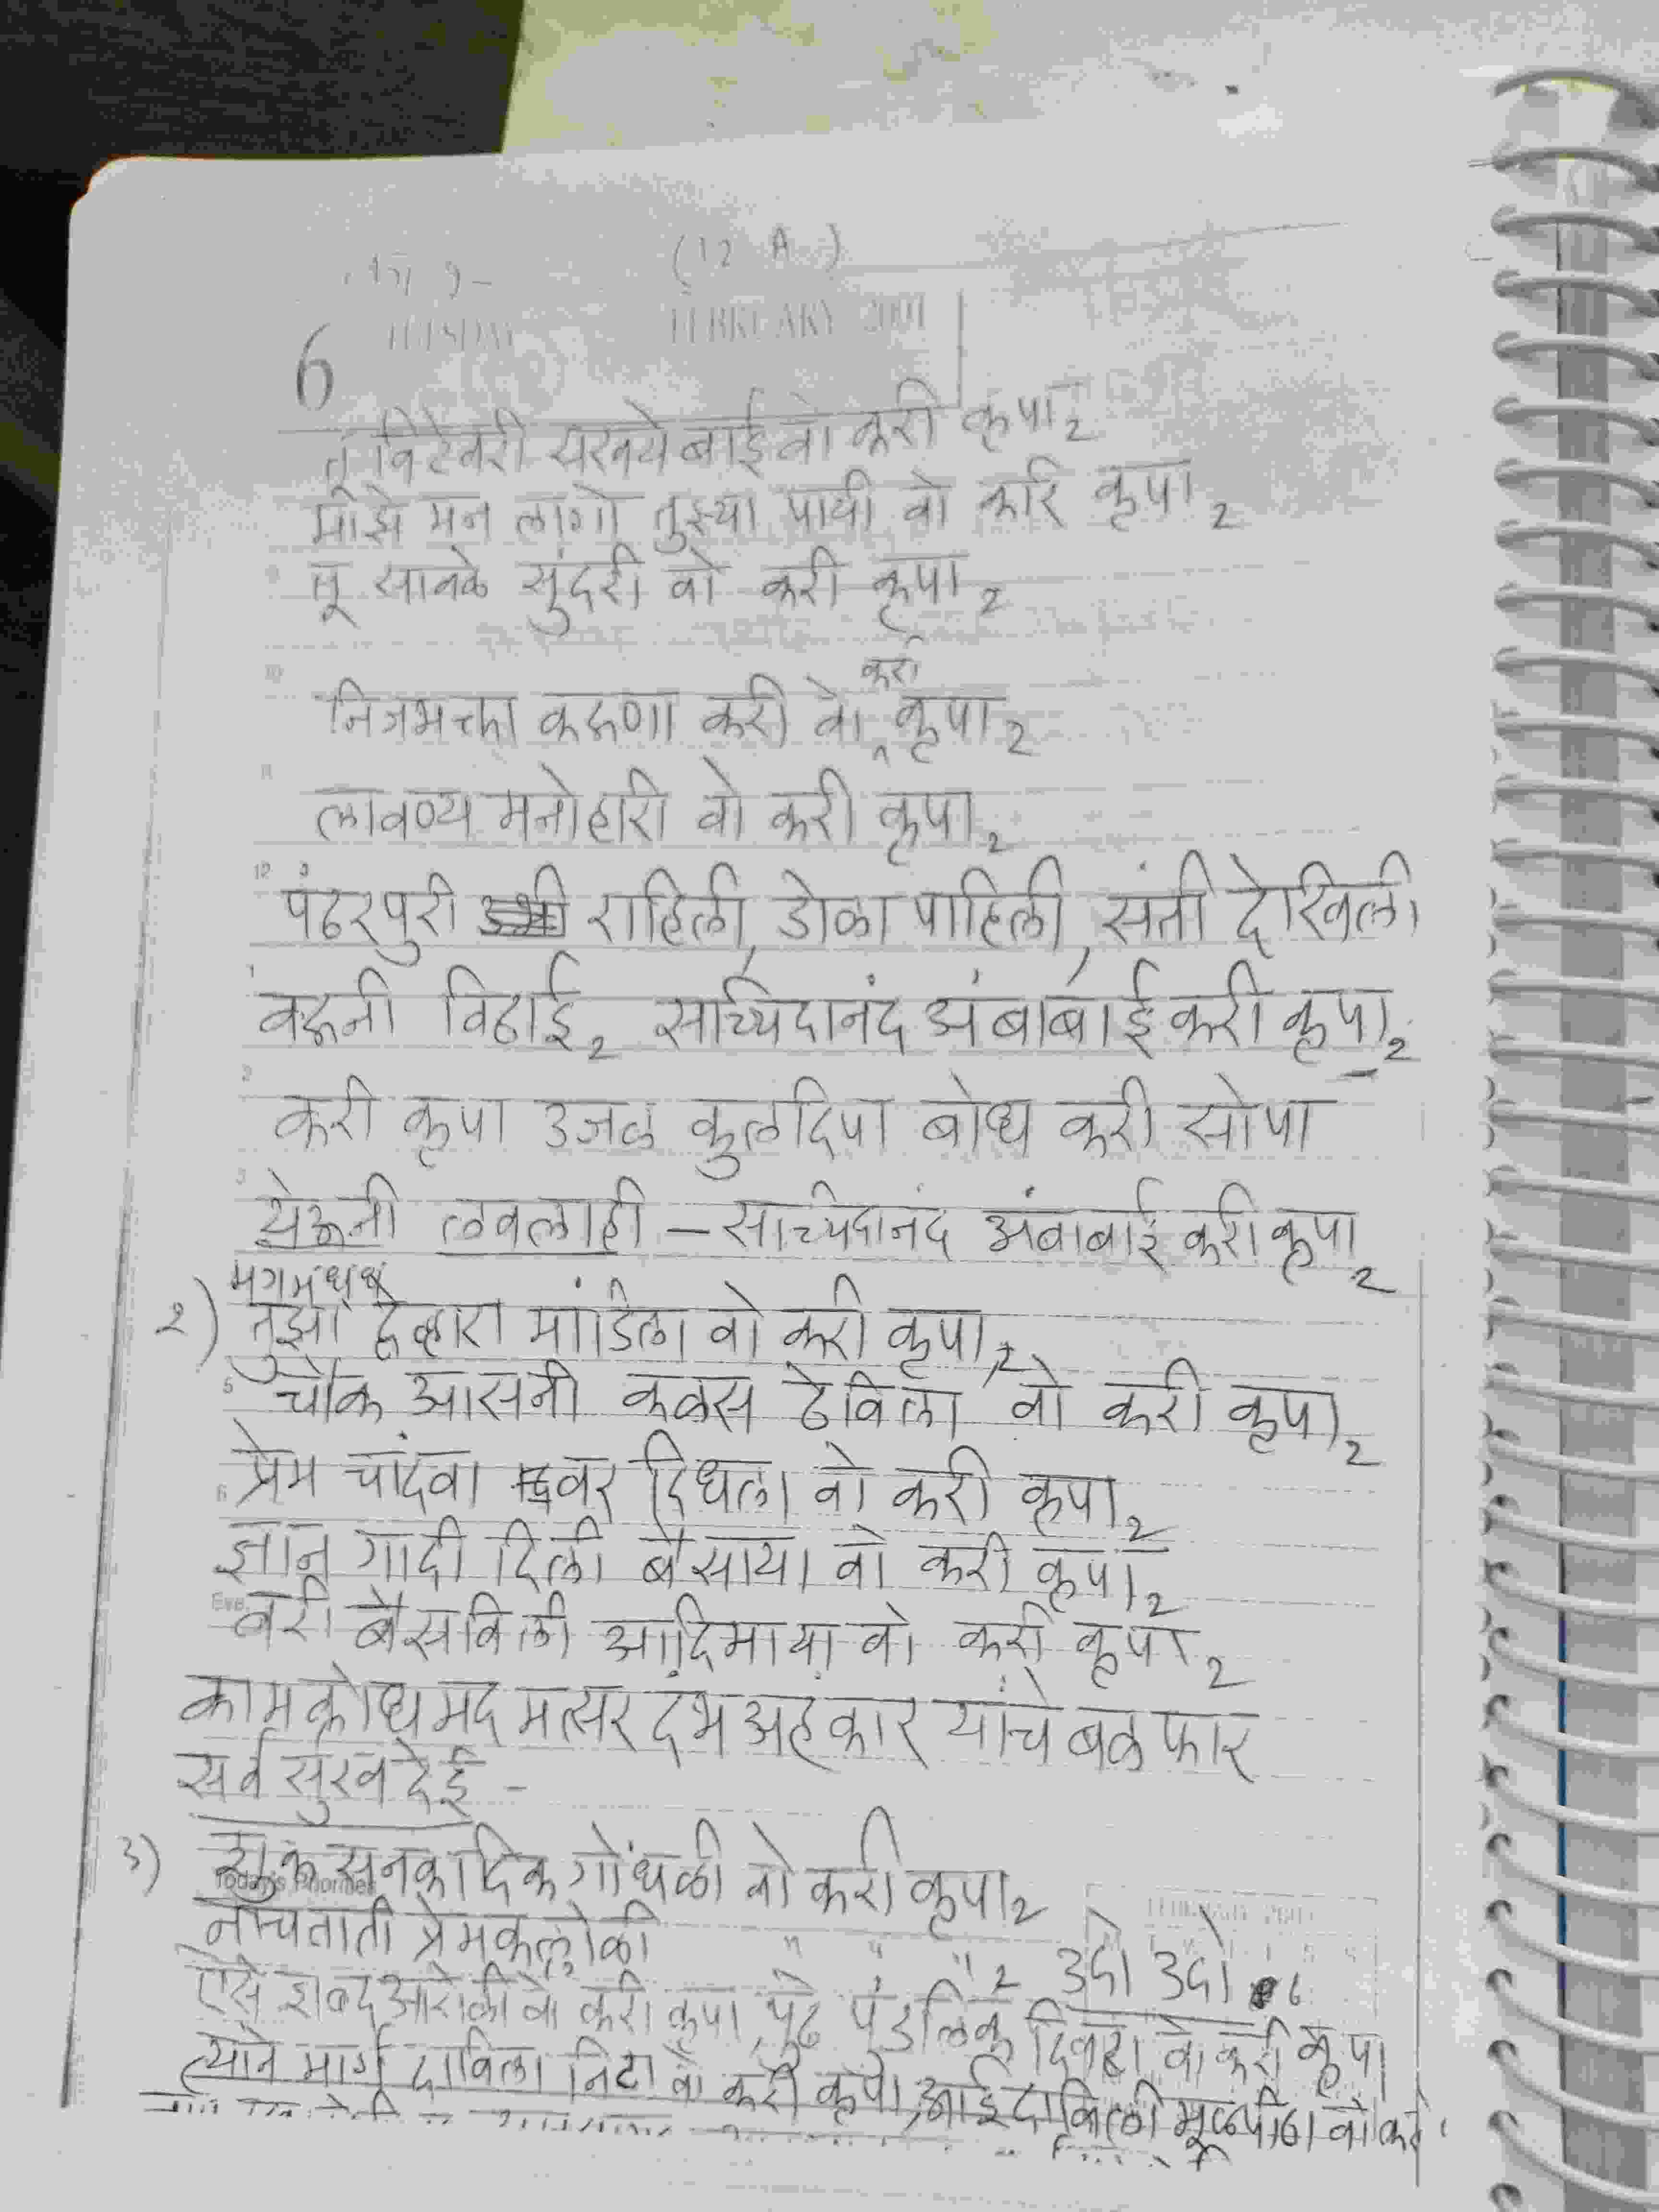 (12 A)
6 TUESDAY FEBRUARY 2001
तू विटेवरी सखये बाई वो करी कृपा 2
माझे मन लागो तुझ्या पायी वो करि कृपा 2
तू सावळे सुंदरी वो करी कृपा 2
करी
निजभक्ता करूणा करी वो ^ कृपा 2
लावण्य मनोहारी वो करी कृपा 2
पंढरपुरी राहिली, डोळा पाहिली, संती देखिली
वरूनी विठाई 2 सच्चिदानंद अंबाबाई करी कृपा 2
करी कृपा उजळ कुलदिपा बोध करी सोपा
येऊनी लवलाही – सच्चिदानंद अंबाबाई करी कृपा 2
2) तुझा देव्हारा मांडिला वो करी कृपा 2
चौक आसनी कळस ठेविला वो करी कृपा 2
प्रेम चांदवा वर दिधला वो करी कृपा 2
ज्ञान गादी दिली बैसाया वो करी कृपा 2
वरी बैसविली आदिमाया वो करी कृपा 2
काम क्रोध मद मत्सर दंभ अहंकार यांचे बळ फार
सर्व सुख देई –
3) शुक सनकादिक गोंधळी वो करी कृपा 2
Today's Priorities
नाचताती प्रेमकल्लोळी " " " 2 उदो उदो 6
ऐसे शब्द आरोळी वो करी कृपा, पुढे पुंडलिक दिवटा वो करी कृपा
त्याने मार्ग दाविला निटा वो करी कृपा, आई दाविली मूळपीठा वो करी